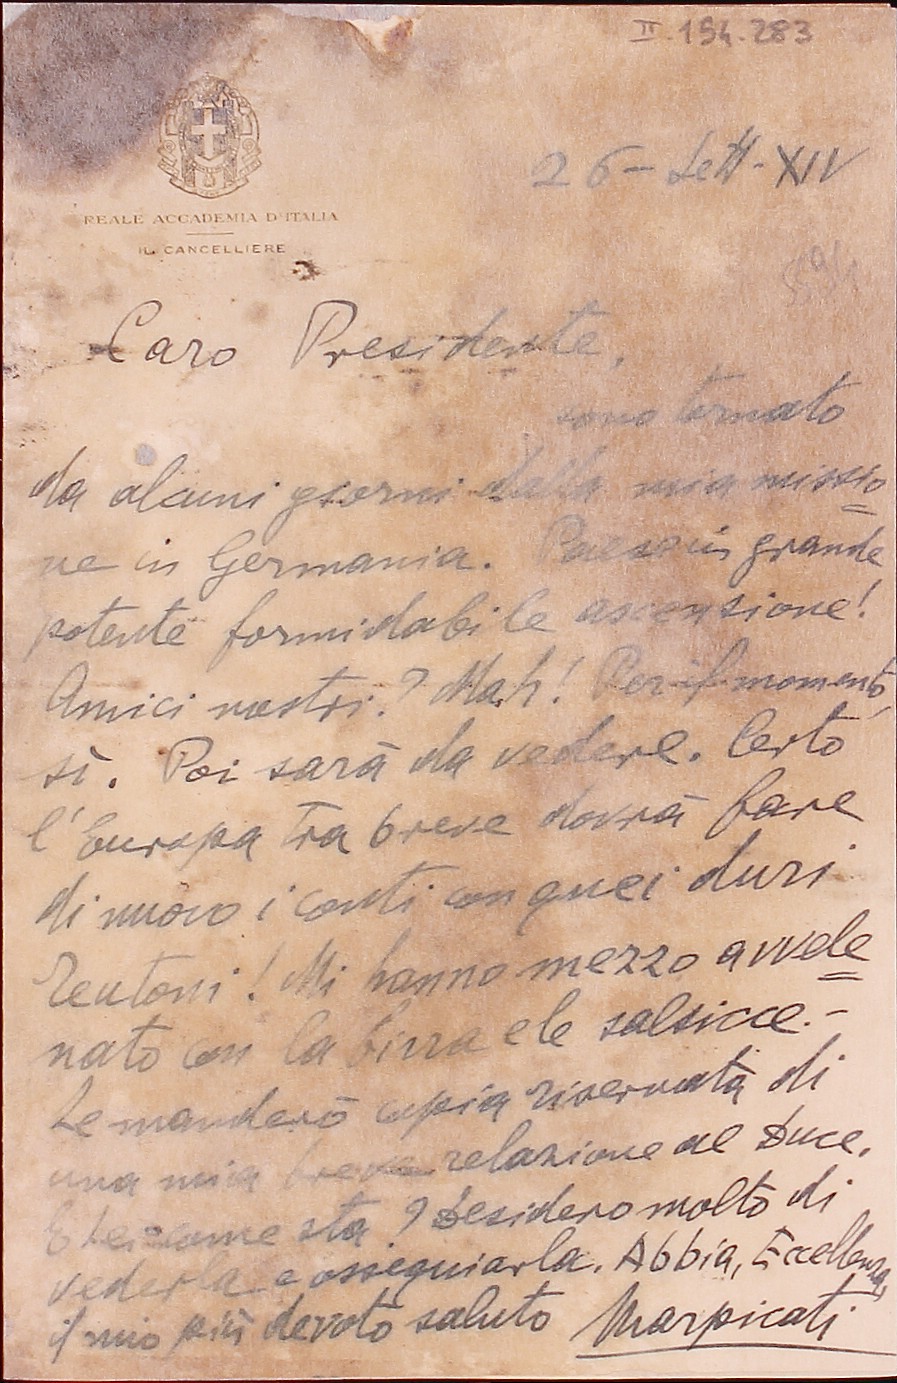 II.154.283
REALE ACCADEMIA D'ITALIA
IL CANCELLIERE
26-Sett-XIV
Caro Presidente,
sono tornato
da alcuni giorni dalla mia missio
ne in Germania. Paese in grande
potente formidabile ascensione!
Amici nostri? Mah! Per il momento,
sì. Poi sarà da vedere. Certo
l'Europa tra breve dovrà fare
di nuovo i conti con quei duri
Teutoni! Mi hanno mezzo avvele
nato con la birra e le salsicce.-
Le manderò copia riservata di
una mia breve relazione al Duce.
E Lei come sta? Desidero molto di
vederla e ossequiarla. Abbia, Eccellenza,
il mio più devoto saluto Marpicati